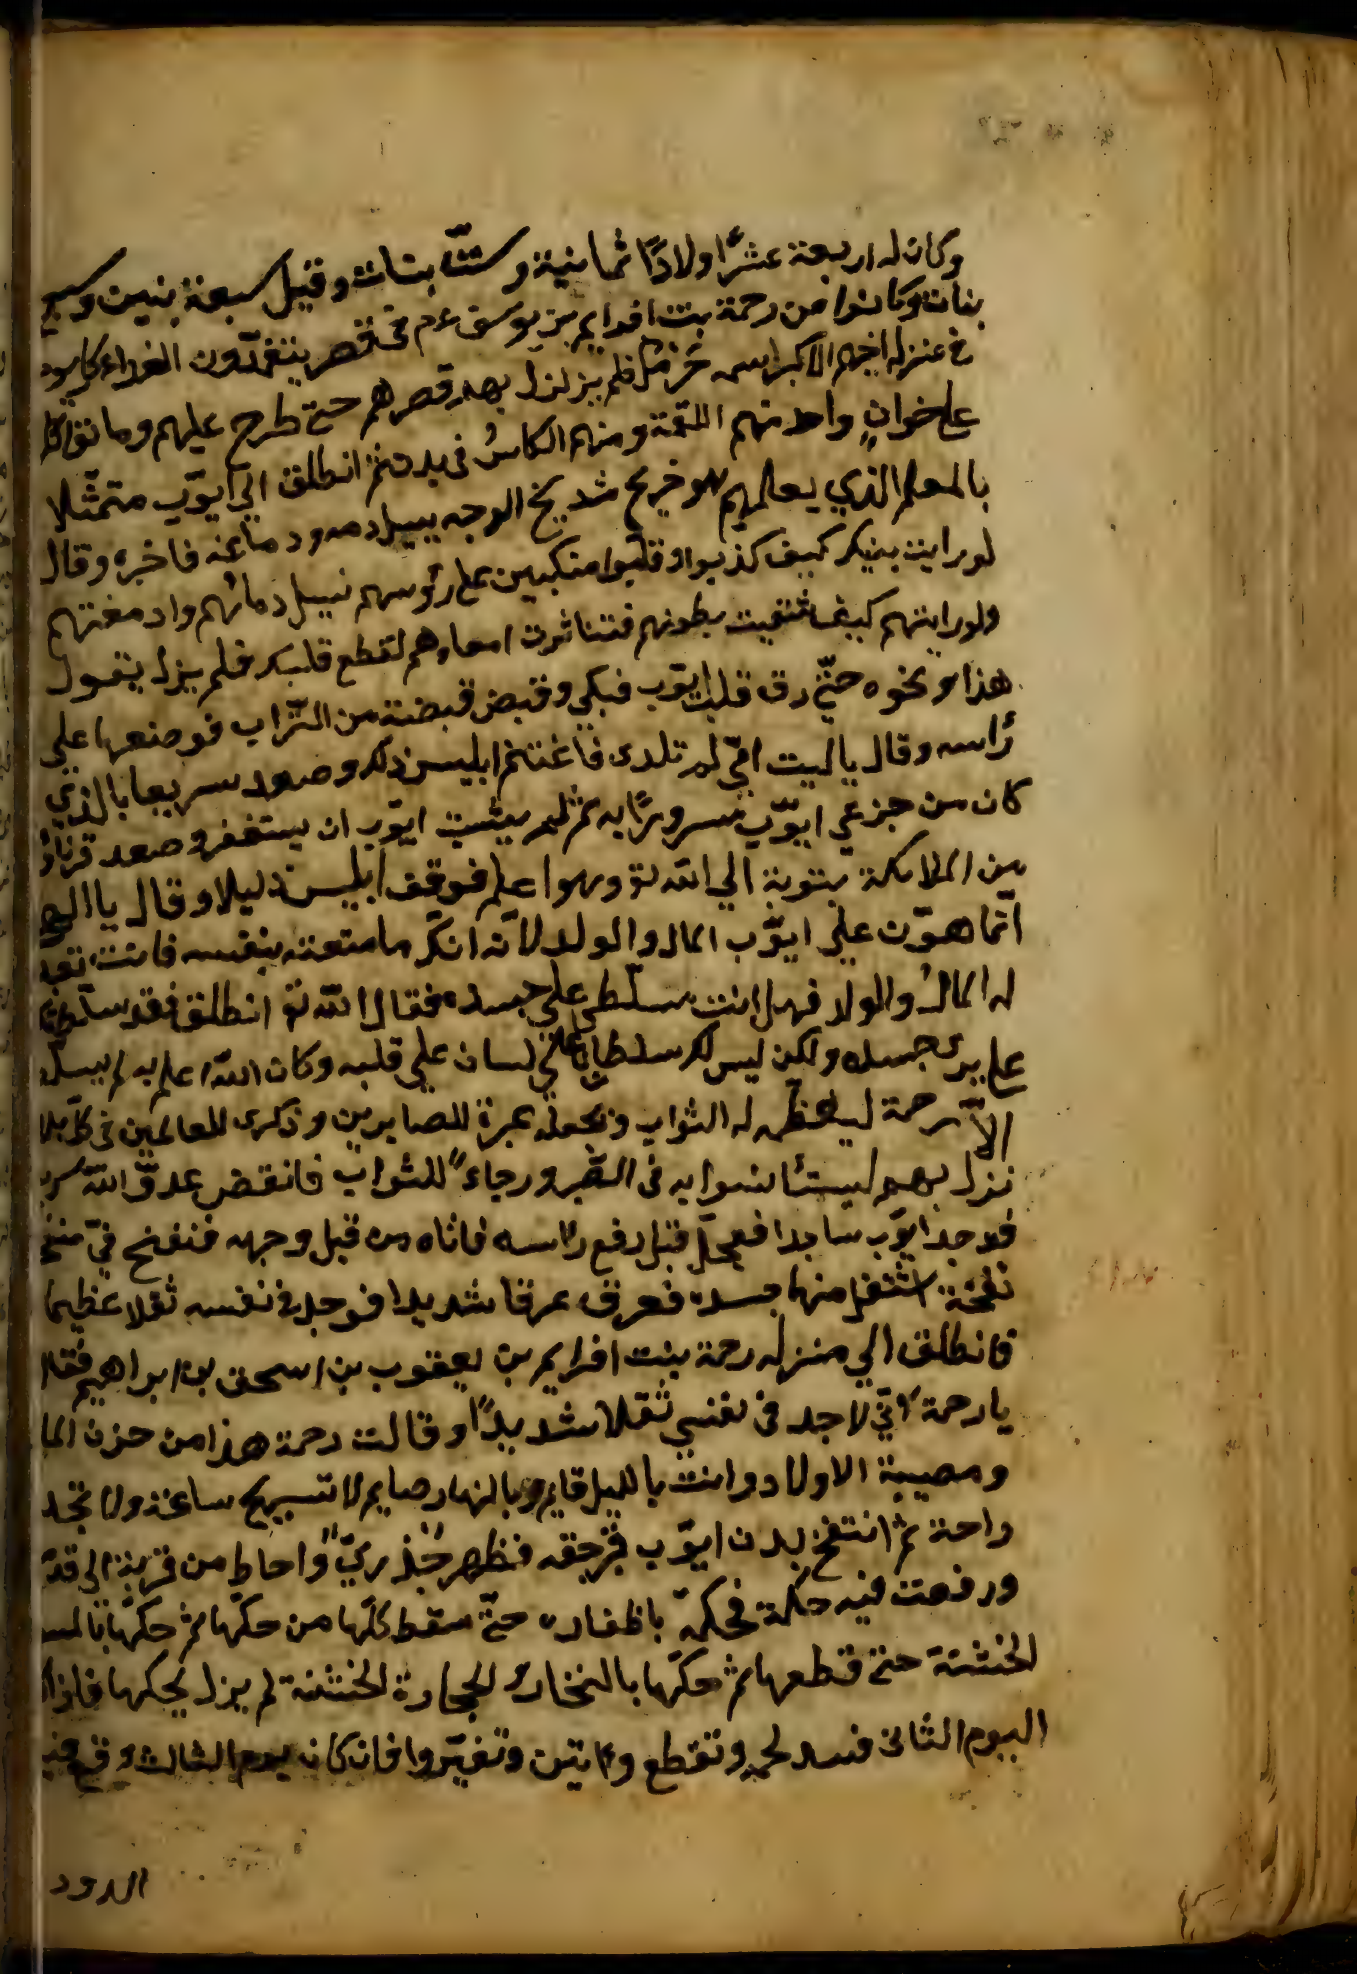 وكان له اربعة عشرًا ولادًا ثمانية وستّا بنات وقيل سبعة بنين وسبع
بنات وكانوا من رحمة بنت افرايم بن يوسف عم في قصر يتغدّون الغداء
في منزل اخيهم الاكبر اسمه حرمل فلم يزلزل بهم قصرهم حتى طرح عليهم وما
على خوانٍ واحد منهم اللقمة ومنهم الكاسُ في يده ثم انطلق الي ايوّب متمثّلا
بالمعلم الذي يعلمهم وهو جريح شديخ الوجه يسيل دمه ودماغه فاخبره وقال
لو رايت بنيك كيف كذبوا وقلبوا منكبين على رؤسهم نسيل دمائهم وادمغتهم
ولو رايتهم كيف شقيت بطونهم فتناثرت امعاوهم لقطع قلبك فلم يزل يقول
هذا ونحوه حتّى رق قلب ايوّب فبكي وقبض قبضة من التّراب فوضعها علي
رأسه وقال يا ليت امّي لم تلدى فاغتنم ابليس ذلك وصعد سريعا بالذي
كان من جزعي ايوّب مسرورًا به ثم لم يبثيت ايوّب ان يستغفر وصعد قرناؤ
من الملايكة بتوبة الي الله تع وهوا علم فوقف ابليس ذليلا وقال يا الهي
انّما هوّن علي ايوّب المال والولد لانّه انكّر ما متعته بنفسه فانت تعيد
له المالُ والولد فهل انت سلّطي علي جسده فقال الله تع انطلق فقد سلّطتك
على جسده ولكن ليس لك سلطانا على لسان علي قلبه وكان الله اعلم به لم يسلّط
الاّ رحمة ليعظّم له الثواب ونجعله عبرة للصابرين وذكرى للعالمين في كلّ بلاء
نزل بهم ليستأنسوا به في الصّبر ورجاءً للثواب فانقض عدوّ الله
فوجد ايوّب ساجدا فعجّل قبل رفع راسه فاتاه من قبل وجهه فنفخ في منخر
نفخة اشتغل منها جسده فعرق عرقا شديدا فوجد في نفسه ثقلا عظيما
فانطلق الي منزله رحمة بنت افرايم بن يعقوب بن اسحق بن ابراهيم فقال
يا رحمة انّي لاجد في نفسي ثقلا شديدًا وقالت رحمة هذا من حزن المال
ومصيبة الاولاد وانت بالليل قايم وبالنهار صايم لا تستريح ساعة ولا تجد
راحة ثم انتفخ بدن ايوّب فظهر جُذريّ واحاط من قرنه الى قدمه
ورفعت فيه حكّة فحكّه باظفاره حتّى سقط كلّها من حكّها ثم حكّها بالمسوح
الخشنة حتى قطعها ثم حكّها بالفخار والحجارة الخشنة لم يزل يحكها فاذا كان
اليوم الثانى فسد لحمه وتقطع وانتن وتغيّروا فان كان يوم الثالث وقع فيه
الدود